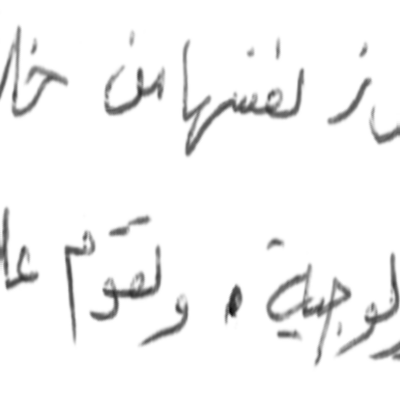 لنفسها من خلا
لوجية. وتقوم عل